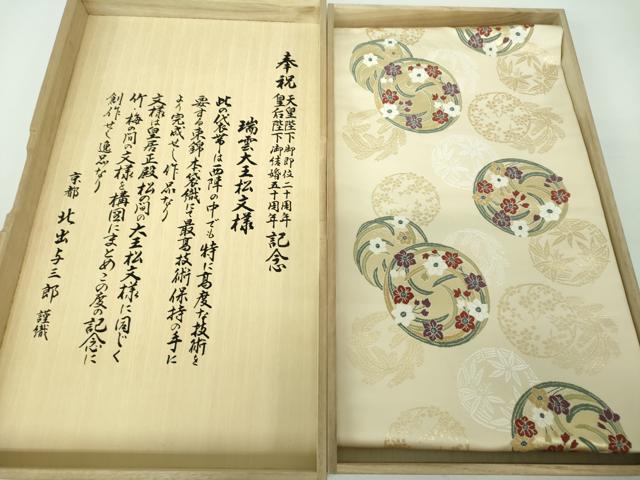 奉祝
天皇陛下御即位二十周年
皇后陛下御結婚五十周年
記念
瑞雲大王松文様
此の袋帯は西陣の中でも特に高度な技術を
要する東錦本袋織にて最高技術保持の手に
より完成せし作品なり
文様は皇居正殿松の間の大王松文様に同じく
竹・梅の間の文様を構図にまとめこの度の記念に
創作せし逸品なり
京都 北出与三郎 謹織